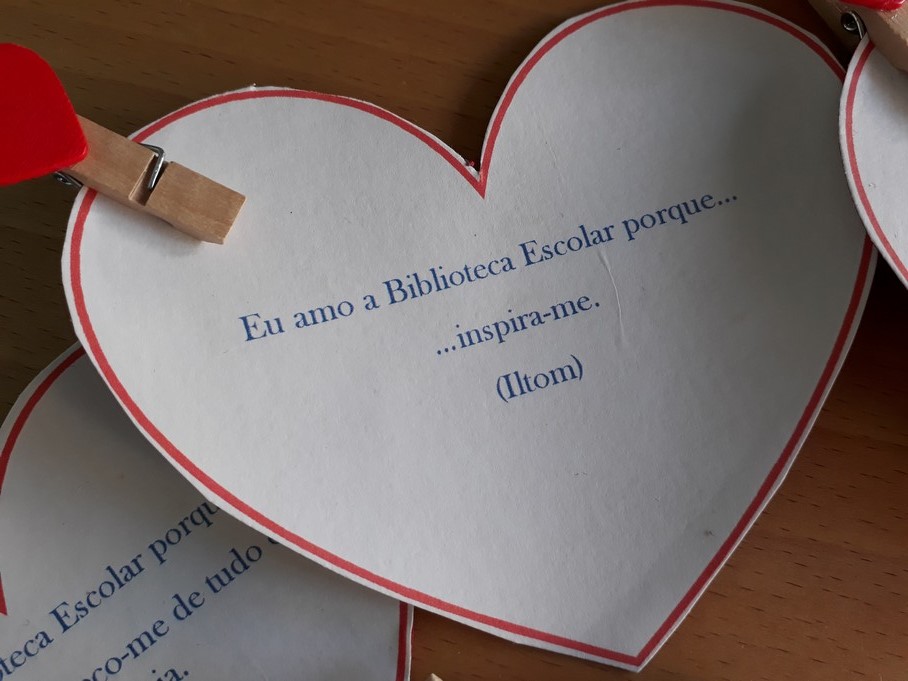 Eu amo a Biblioteca Escolar porque...
...inspira-me.
(Iltom)
Escolar
-me de tudo